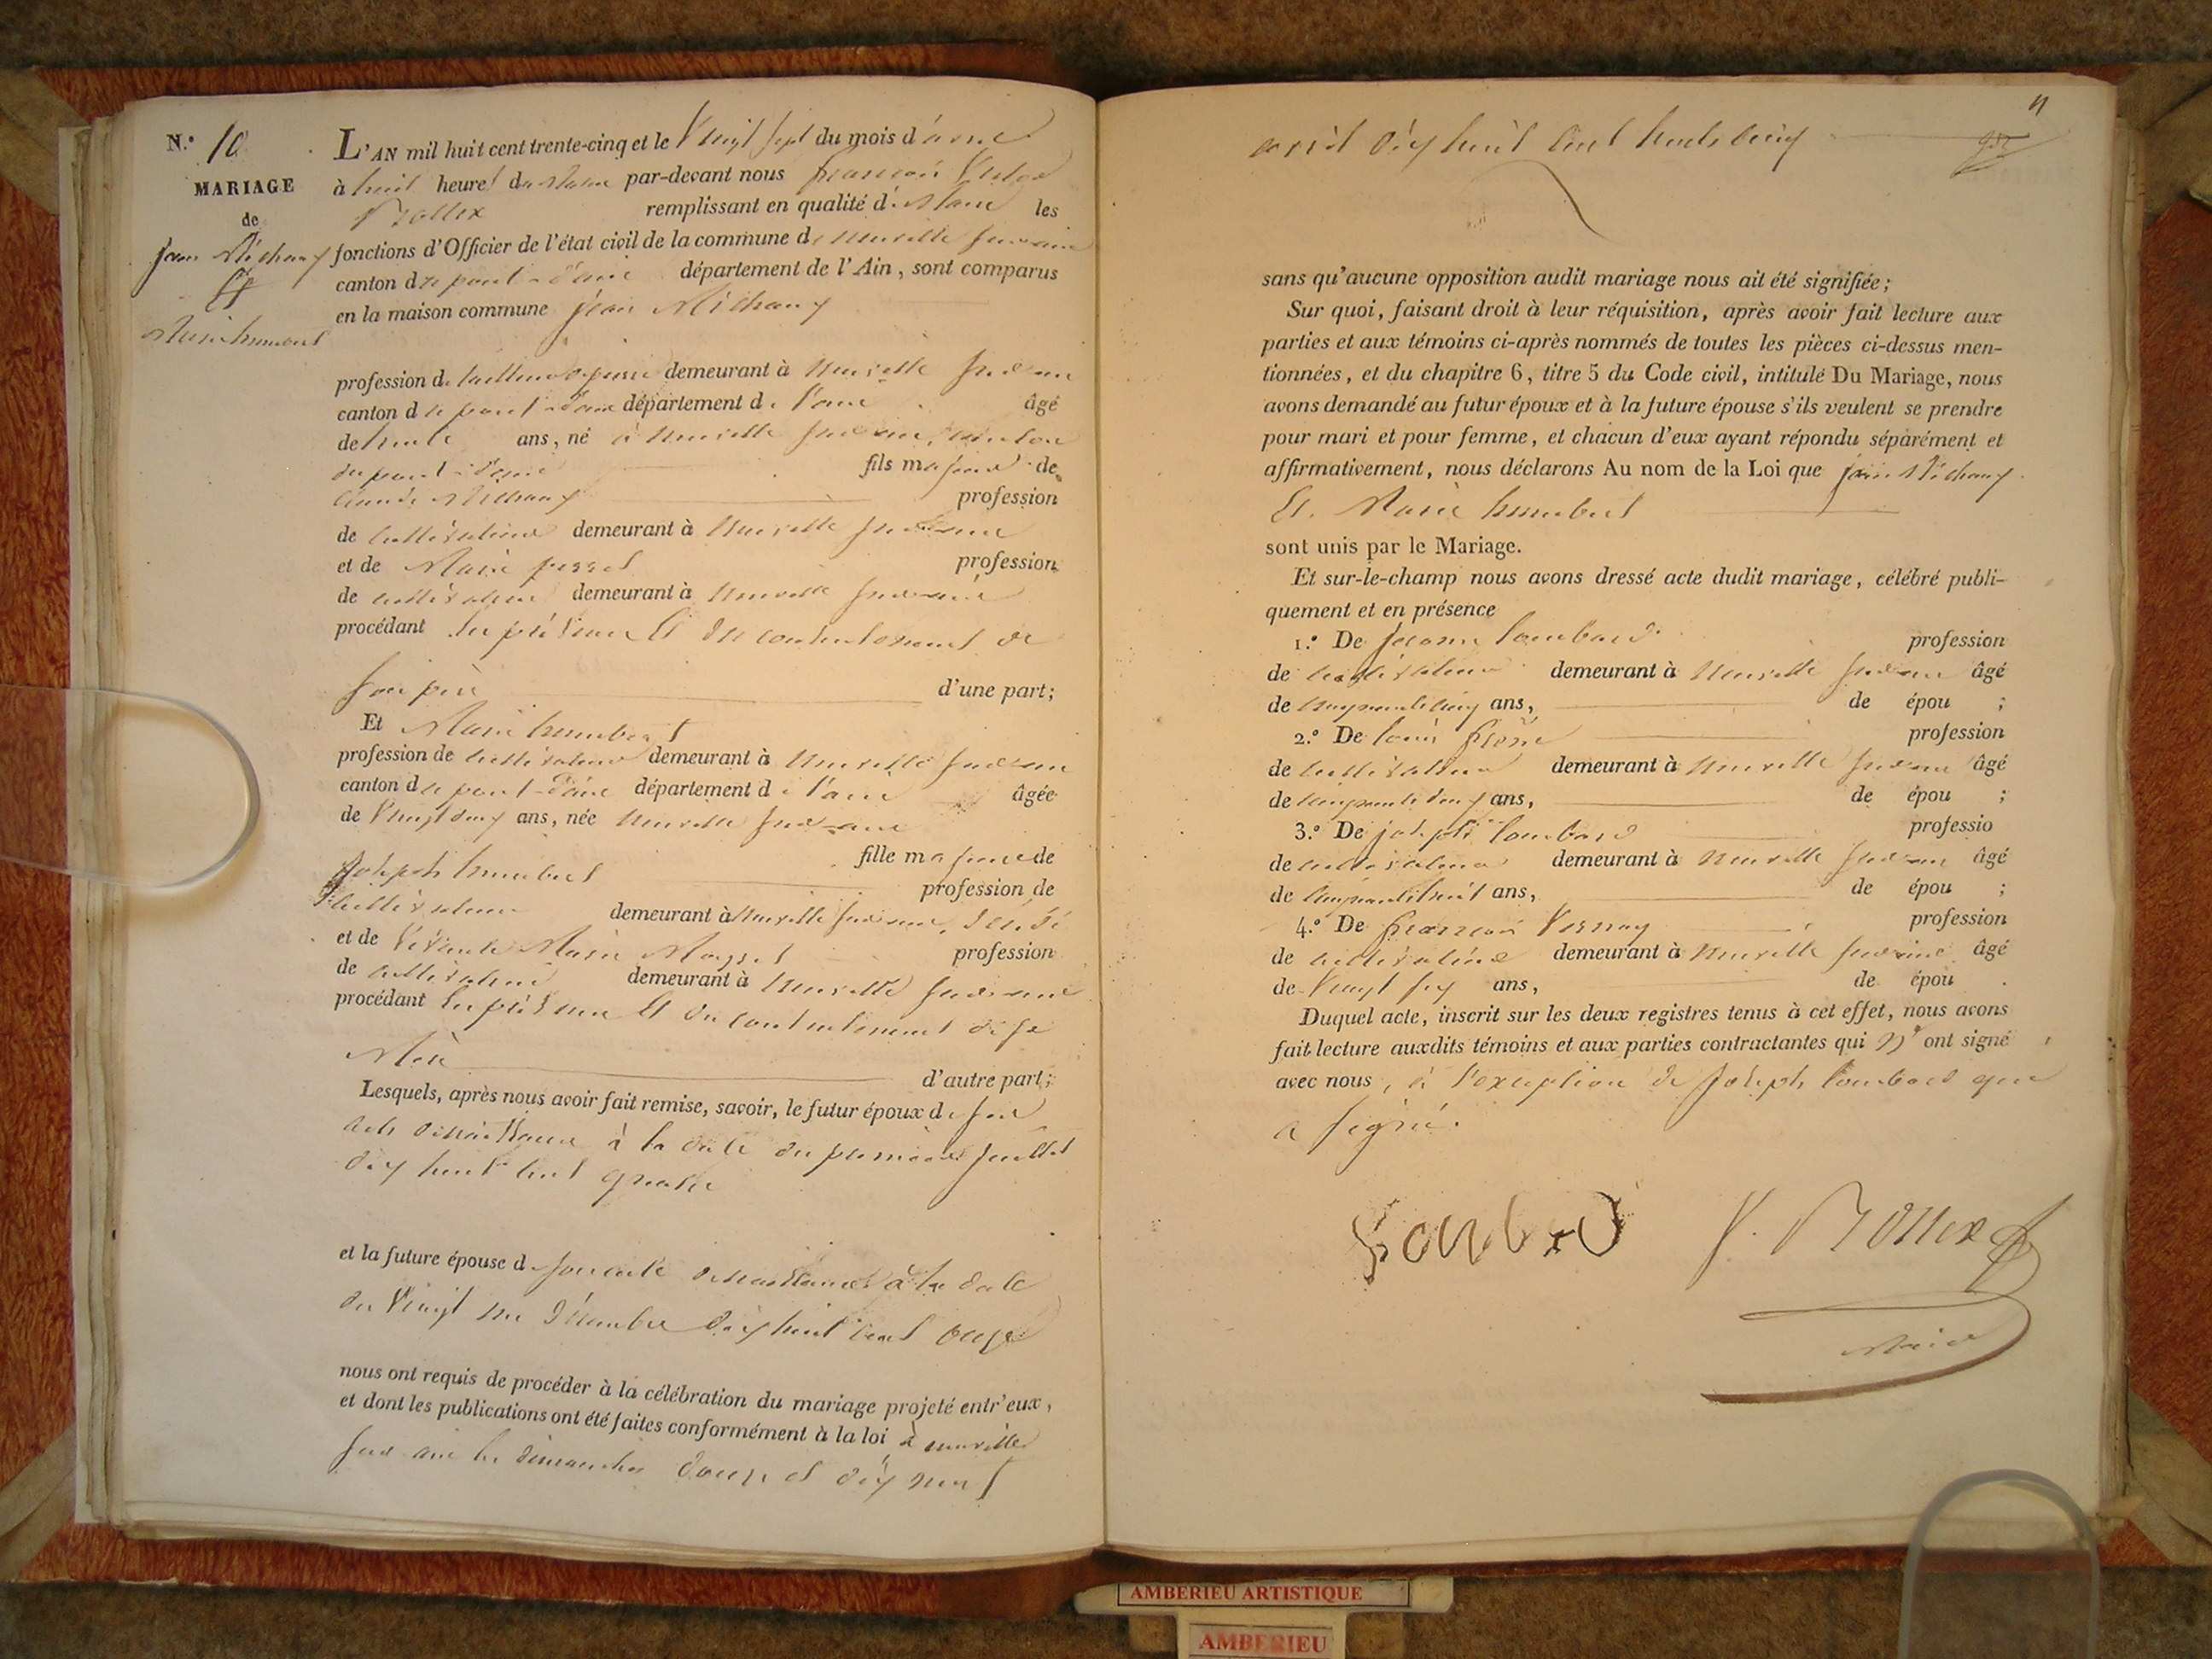 N.º 10
MARIAGE
de
jean Michaux
Et
Marie humbert
L'AN mil huit cent trente-cinq et le Vingt sept du mois d'avril
à huit heures du matin par-devant nous françois
remplissant en qualité de Maire les
fonctions d'Officier de l'état civil de la commune de neuville sur ain
canton de pont-d'ain département de l'Ain, sont comparus
en la maison commune jean Michaux
profession de tailleur de pierre demeurant à Neuville sur ain
canton de pont-d'ain département de l'ain âgé
de trente ans, né à neuville sur ain, canton
du pont-d'ain fils majeur de
Claude Michaux profession
de cultivateur demeurant à Neuville sur ain
et de Marie profession
de cultivateur demeurant à Neuville sur ain
procédant lui présent Et du consentement de
son père d'une part;
Et Marie humbert
profession de cultivateur demeurant à Neuville sur ain
canton de pont-d'ain département de l'ain âgée
de Vingt deux ans, née Neuville sur ain
fille majeure de
Joseph humbert profession de
cultivateur demeurant à Neuville sur ain, décédé
et de Vivante Marie profession
de cultivateur demeurant à Neuville sur ain
procédant lui présent Et du consentement de sa
Mère d'autre part;
Lesquels, après nous avoir fait remise, savoir, le futur époux de son
acte de naissance à la date du premier juillet
dix huit cent quatre
et la future épouse de son acte de naissance à la date
du Vingt un décembre dix huit cent onze
nous ont requis de procéder à la célébration du mariage projeté entr'eux,
et dont les publications ont été faites conformément à la loi à neuville
sur ain les dimanches douze et dix neuf
11
avril dix huit cent trente cinq
sans qu'aucune opposition audit mariage nous ait été signifiée;
Sur quoi, faisant droit à leur réquisition, après avoir fait lecture aux
parties et aux témoins ci-après nommés de toutes les pièces ci-dessus men-
tionnées, et du chapitre 6, titre 5 du Code civil, intitulé Du Mariage, nous
avons demandé au futur époux et à la future épouse s'ils veulent se prendre
pour mari et pour femme, et chacun d'eux ayant répondu séparément et
affirmativement, nous déclarons Au nom de la Loi que jean Michaux
Et. Marie humbert
sont unis par le Mariage.
Et sur-le-champ nous avons dressé acte dudit mariage, célébré publi-
quement et en présence
1.º De Lombard profession
de cultivateur demeurant à Neuville sur ain âgé
de cinquante cinq ans, de épou ;
2.º De louis profession
de cultivateur demeurant à Neuville sur ain âgé
de cinquante deux ans, de épou ;
3.º De joseph Lombard professio
de cultivateur demeurant à Neuville sur ain âgé
de cinquante huit ans, de épou ;
4.º De françois Vernay profession
de cultivateur demeurant à Neuville sur ain âgé
de Vingt six ans, de épou .
Duquel acte, inscrit sur les deux registres tenus à cet effet, nous avons
fait lecture auxdits témoins et aux parties contractantes qui N' ont signé
avec nous, à l'exception de Joseph Lombard qui
a signé.
Maire
AMBERIEU ARTISTIQUE
AMBERIEU